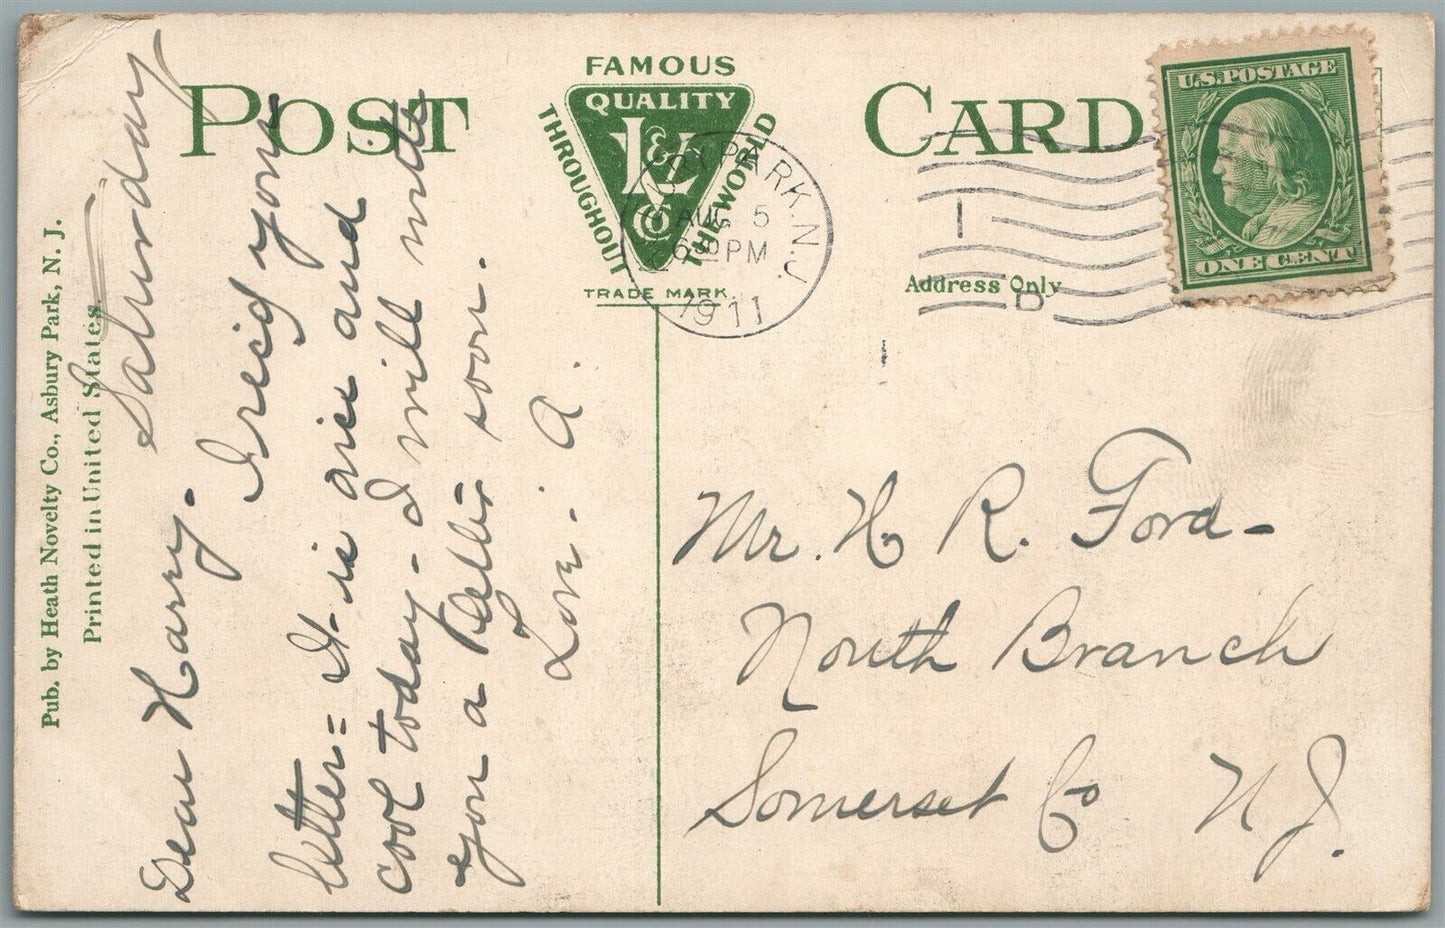 POST CARD
FAMOUS
QUALITY
THROUGHOUT
THE WORLD
L & V
Co
TRADE MARK
PARK. N.J.
AUG 5
PM
1911
U.S. POSTAGE
ONE CENT
Address Only
Pub. by Heath Novelty Co., Asbury Park, N. J.
Printed in United States.
Saturday
Dear Harry. I rec'd your
letter= It is nice and
cool today- I will write
you a letter soon.
Love. A.
Mr. H. R. Ford-
North Branch
Somerset Co N J.